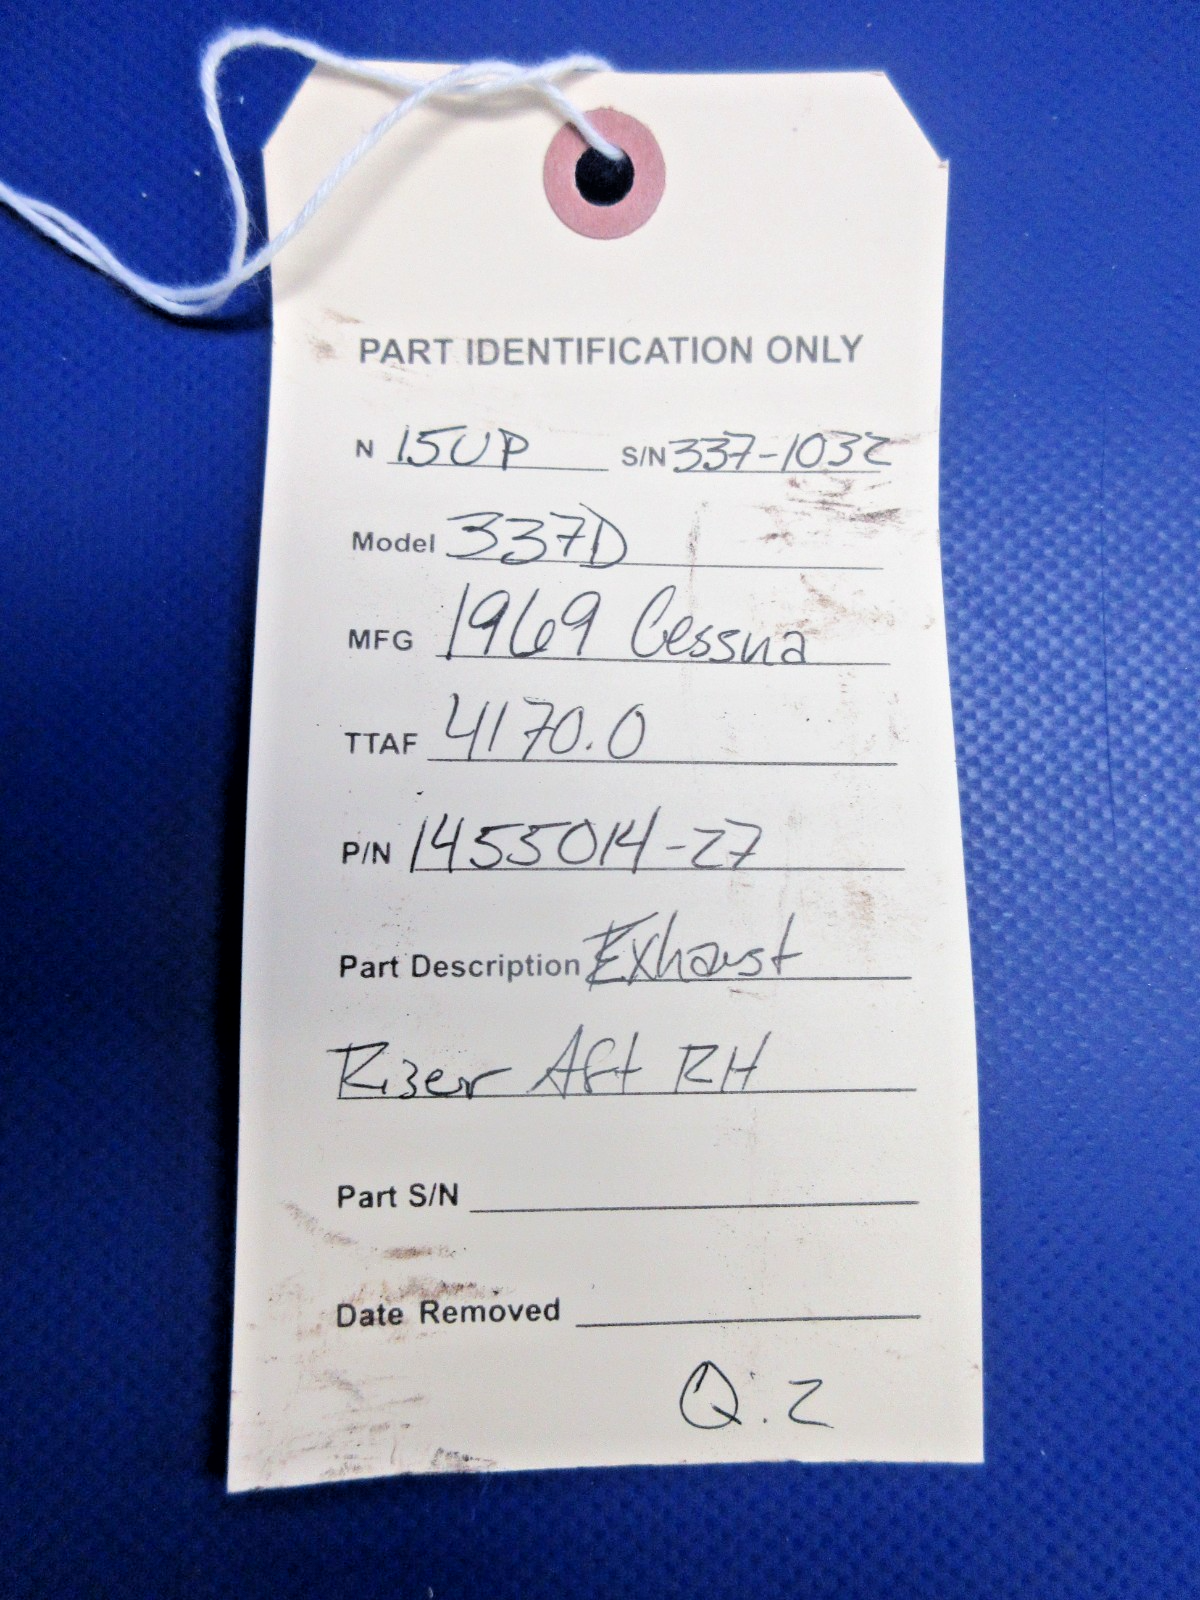 PART IDENTIFICATION ONLY
N 15UP S/N 337-1032
Model 337D
MFG 1969 Cessna
TTAF 4170.0
P/N 1455014-27
Part Description Exhaust
Rizer Aft RH
Part S/N
Date Removed
Q.2